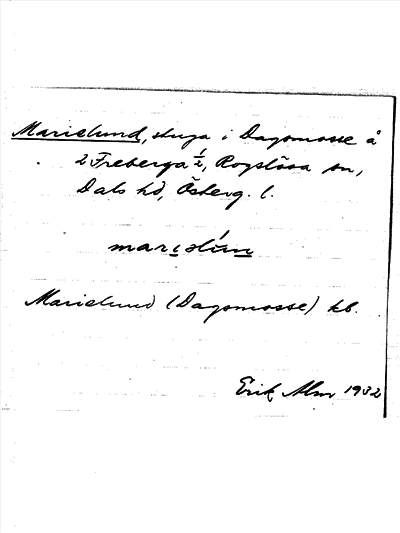 Marielund, stuga i Dagsmosse å
2 Freberga ½, Rogslösa sn,
Dals hd, Österg. l.
Marielund (Dagsmosse) kb.
Erik Alm 1932